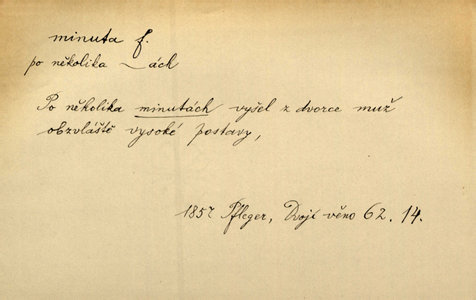 minuta f.
po několika ‿ách
Po několika minutách vyšel z dvorce muž
obzvláště vysoké postavy,
1857 Pfleger, Dvojí věno 62. 14.